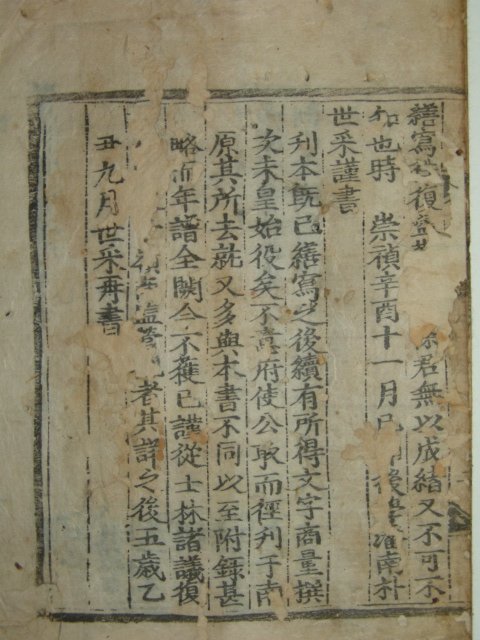 繕寫 復 君無以成緖又不可不
知也時 崇禎辛酉十一月 後 南朴
世采謹書
刊本旣已繕寫之後續有所得文字商量撰
次未皇始役矣不意府使公取而徑刊于南
原其所去就又多與本書不同以至附錄甚
略而年譜全闕今不獲已謹從士林諸議復
者其詳之後五歲乙
丑九月世采再書